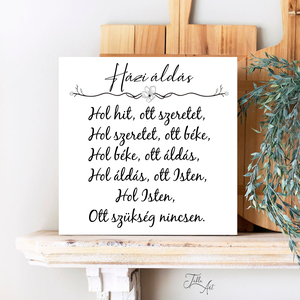 Házi áldás
Hol hit, ott szeretet,
Hol szeretet, ott béke,
Hol béke, ott áldás,
Hol áldás, ott Isten,
Hol Isten,
Ott szükség nincsen.